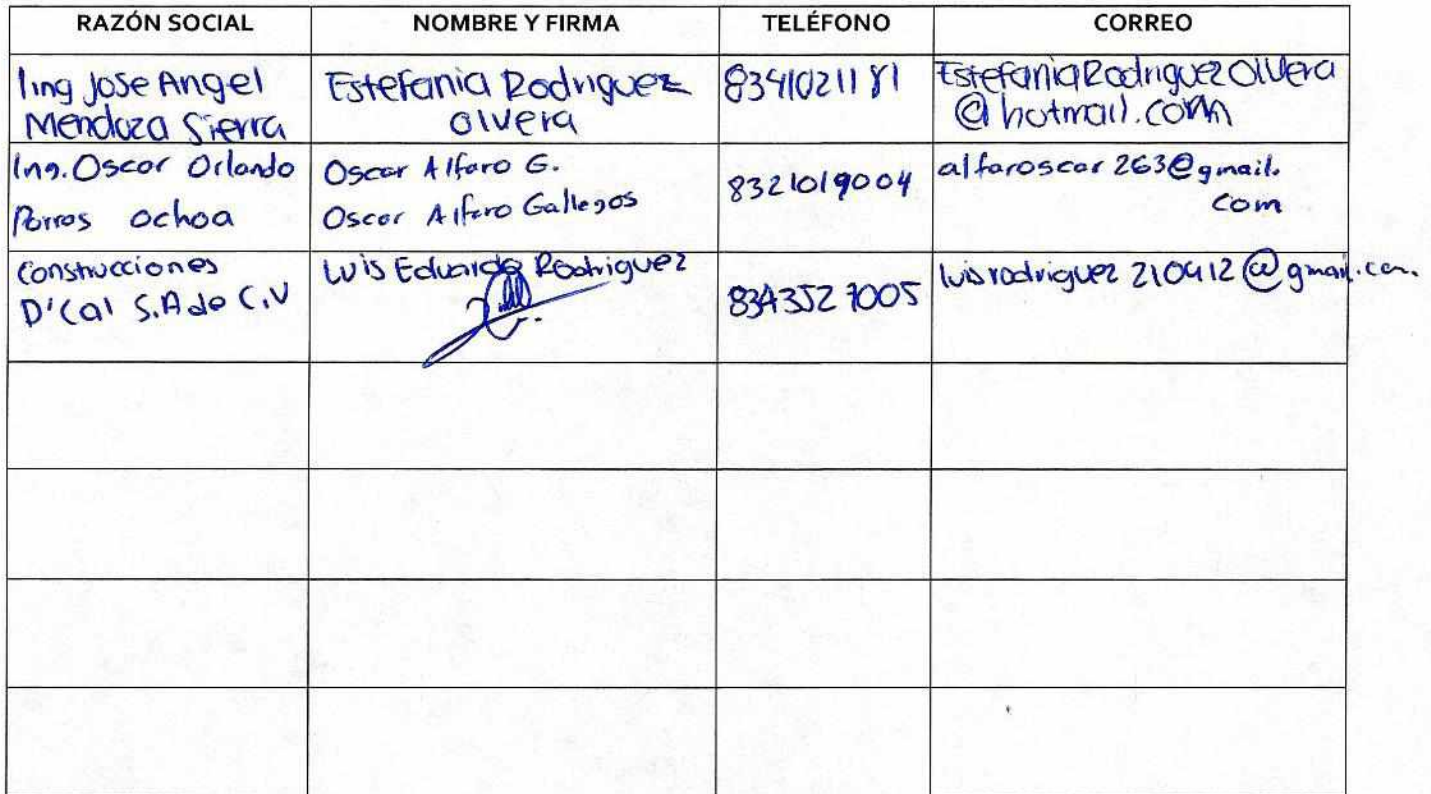 RAZÓN SOCIAL NOMBRE Y FIRMA TELÉFONO CORREO
Ing Jose Angel
Mendoza Sierra
Estefania Rodriguez
Olvera
8341021181
EstefaniaRodriguezOlvera
@hotmail.com
Ing. Oscar Orlando
Porras Ochoa
Oscar Alfaro G.
Oscar Alfaro Gallegos
8321019004
alfaroscar263@gmail.
com
Construcciones
D'Cal S.A de C.V
Luis Eduardo Rodriguez
8343527005
luisrodriguez210412@gmail.com.